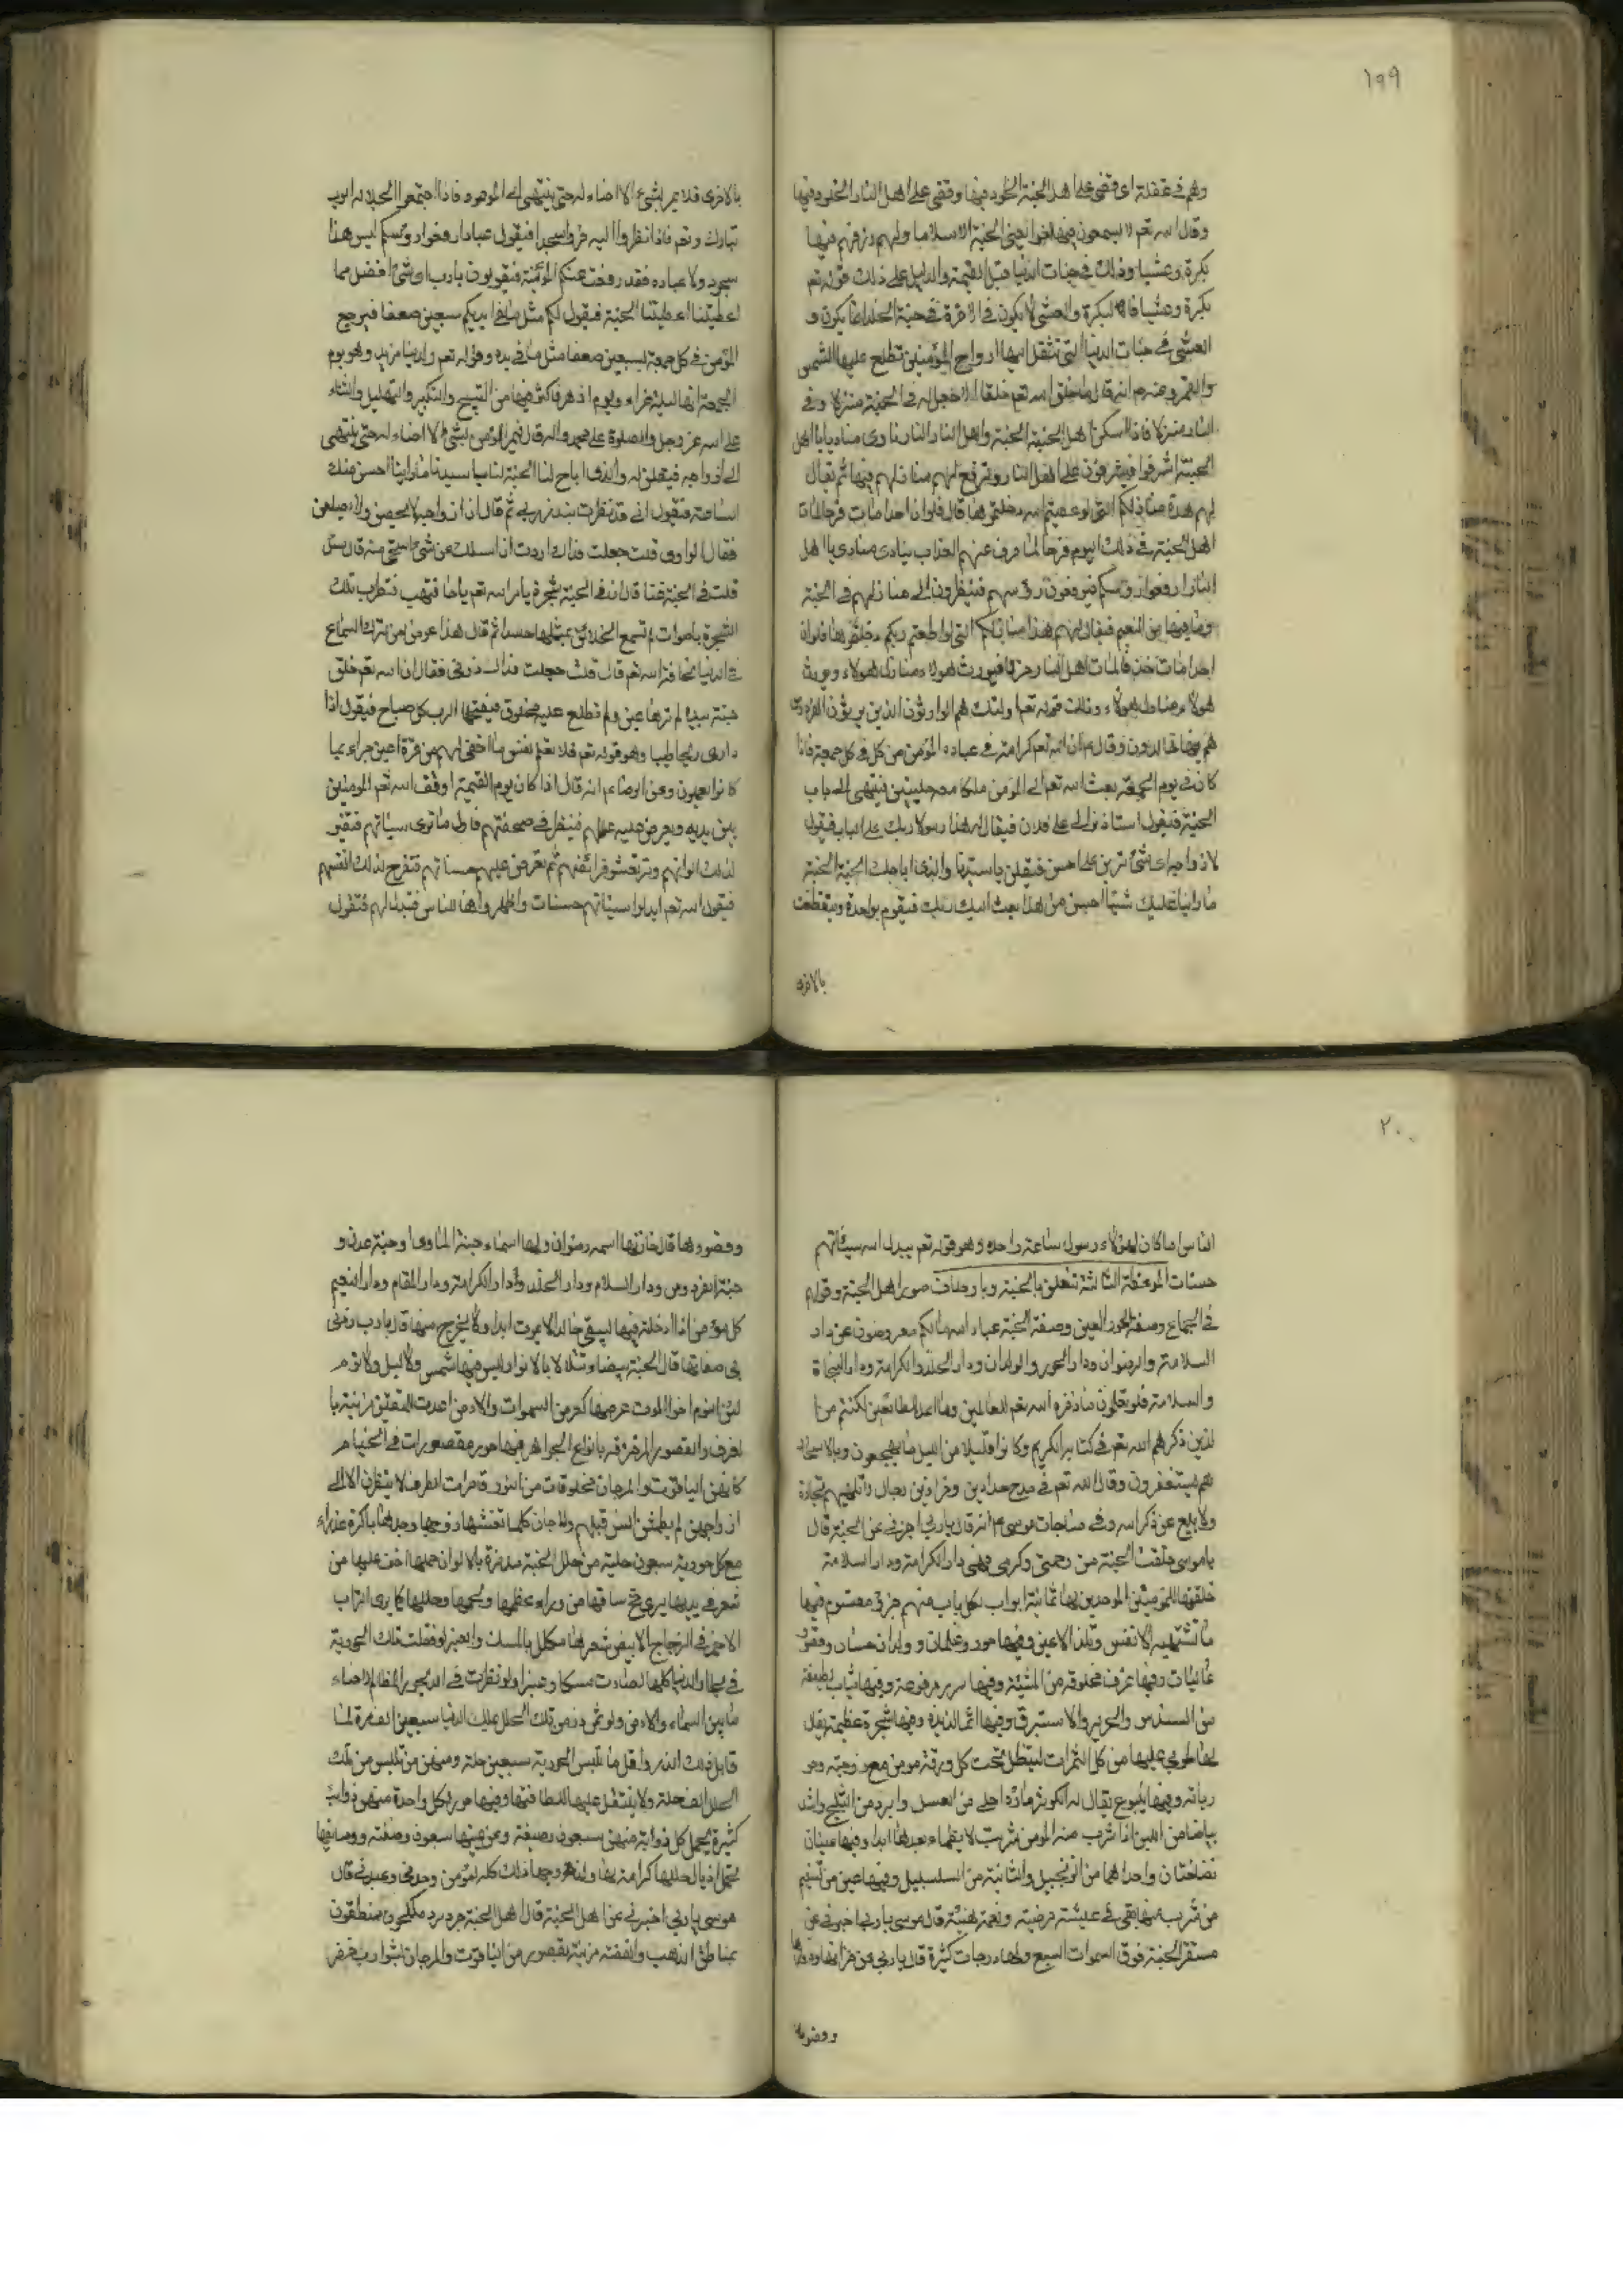 ١٩٩
وهم في غفلة اى قضى على اهل الجنة الخلود فيها وقضى على اهل النار الخلود فيها
وقال اسه تعم لا يسمعون فيها لغوا يعنى الجنة الاسلاما ولهم رزقهم فيها
بكرة وعشيا وذلك في جنات الدنيا قبل القيمة والدليل على ذلك قوله تعم
بكرة وعشيا فالبكرة والعشى لا يكون في الاخرة في جنة الخلد انما يكون و
العشى في جنات الدنيا التى تنتقل اليها ارواح المؤمنين تطلع عليها الشمس
والقمر وعنه م انه قال ما خلق اسه تعم خلقا الا جعل له في الجنة منزلا وفي
النار منزلا فاذا اسكن اهل الجنة الجنة واهل النار النار نادى مناد يا اهل
الجنة اشرفوا فيشرفون على اهل النار وترفع لهم منازلهم فيها ثم يقال
لهم هذه منازلكم التى لو عصيتم اسه دخلتموها قال فلو ان احدا مات فرحا لمات
اهل الجنة في ذلك اليوم فرحا لما صرف عنهم العذاب ينادى منادى يا اهل
النار ارفعوا رؤسكم فيرفعون رؤسهم فينظرون الى منازلهم في الجنة
وما فيها من النعيم فيقال لهم هذا منازلكم التى لو اطعتم ربكم دخلتموها فلو ان
احدا مات حزنا لمات اهل النار حزنا فيورث هولاء منازل هولاء ويورث
هولاء منازل هولاء وذلك قوله تعم اولئك هم الوارثون الذين يرثون الفردوس
هم فيها خالدون وقال م ان اسه تعم كرامة في عباده المؤمنين في كل جمعة فاذا
كان في يوم الجمعة بعث اسه تعم الى المؤمن ملكا معه حلتين فينتهى الى باب
الجنة فيقول استاذنوا لى على فلان فيقال له هذا رسول ربك على الباب فيقول
لازواجه اى شئ ترين على احسن فيقلن يا سيدنا والذى اباحك الجنة الجنة
ما راينا عليك شيئا احسن من هذا بعث اليك ربك فيقوم بواحدة ويتعطف
بالاخرى
بالاخرى فلا يمر بشئ الا اضاء له حتى ينتهى الى الموعود فاذا اجتمعوا تجلا لهم الرب
تبارك وتعم فاذا نظروا اليه خروا سجدا فيقول عبادى ارفعوا رؤسكم ليس هذا
سجود ولا عباده فقد رفعت عنكم المؤنة فيقولون يا رب اى شئ افضل مما
اعطيتنا اعطيتنا الجنة فيقول لكم مثل ما في ايديكم سبعين ضعفا فيرجع
المؤمن في كل جمعة بسبعين ضعفا مثل ما في يديه وقوله تعم ولدينا مزيد وهو يوم
الجمعة انها ليلة غراء ويوم ازهر فاكثروا فيها من التسبيح والتكبير والتهليل والثناء
على اسه عز وجل والصلوة على محمد واله قال فيمر المؤمن بشئ الا اضاء له حتى ينتهى
الى ازواجه فيقلن له والذى اباح لنا الجنة يا سيدنا ما راينا احسن منك
الساعة فيقول انى قد نظرت بنور ربى ثم قال ان ازواجه لا يحضن ولا يصلفن
فقال الراوى قلت جعلت فداك اردت ان اسئلك عن شئ استحى منه قال سل
قلت في الجنة غنا قال ان في الجنة شجرة يامر اسه تعم رياحا فتهب فتطرب تلك
الشجرة باصوات لم تسمع الخلائق بمثلها حسنا ثم قال هذا عوض من ترك السماع
في الدنيا مخافة اسه تعم قال قلت جعلت فداك زدنى فقال ان اسه تعم خلق
جنة بيده لم ترها عين ولم تطلع عليها مخلوق فيفتحها الرب كل صباح فيقول ازدادى
ريحا طيبا وهو قوله تعم فلا تعلم نفس ما اخفى لهم من قرة اعين جزاء بما
كانوا يعملون وعن الرضا ع م انه قال اذا كان يوم القيمة اوقف اسه تعم المومنين
بين يديه ويعرض عليه عملهم فينظر في صحيفتهم فاول ما ترى سيئاتهم فتغير
لذلك الوانهم وترتعش فرائصهم ثم تعرض عليهم حسناتهم فتفرح لذلك انفسهم
فيقول اسه تعم ابدلوا سيئاتهم حسنات واظهروها للناس فيبدل لهم فتقول
٢٠٠
الناس اما كان لهؤلاء رسول ساعة واحده وهو قوله تعم يبدل اسه سيئاتهم
حسنات الموعظة الثالثة تتعلق بالجنة
في الجماع وصفة الحور العين وصفة الجنة عباد اسه مالكم معرضون عن دار
السلامة والرضوان ودار الحور والولدان ودار الخلد والكرامة ودار النجاة
والسلامة فلو تعلمون ما ذخره اسه تعم للعالمين وما اعد للطائعين لكنتم من ا
لذين ذكرهم الله تعم في كتابه الكريم وكانوا قليلا من الليل ما يهجعون وبالاسحار
هم يستغفرون وقال الله تعم في مدح رجال لا تلهيهم تجارة
ولا بيع عن ذكر اسه وفي مناجات موسى ع م انه قال يا رب اخبرنى عن الجنة قال
يا موسى خلقت الجنة من رحمتى وكرمى فهى دار الكرامة ودار السلامة
خلقتها للمؤمنين الموحدين لها ثمانية ابواب لكل باب منهم جزؤ مقسوم فيها
ما تشتهيه الانفس وتلذ الاعين وفيها حور وغلمان و ولدان حسان وقصور
عاليات وفيها غرف مخلوقة من المشيئة وفيها سرر مرفوعة وفيها ثياب لطيفة
من السندس والحرير والاستبرق وفيها اثمار لذيذة وفيها شجرة عظيمة يقال
لها طوبى عليها من كل الثمرات ليتظل تحت كل ورقة مومن مع زوجته وحو
رياته وفيها ينبوع يقال له الكوثر ماؤه احلى من العسل وابرد من الثلج واشد
بياضا من اللبن اذا شرب منه المومن شربة لا يظماء بعدها ابدا وفيها عينان
نضاختان واحداهما من الزنجبيل والثانية من السلسبيل وفيها عين من تسنيم
من شرب منها بقى في عيشة مرضية ونعمة هنيئة قال موسى يا رب اخبرنى عن
مستقر الجنة فوق السموات السبع ولها درجات كثيرة قال يا رب من خزانها
وقصورها
وقصورها قال خازنها اسمه رضوان ولها اسماء جنة الماوى وجنة عدن و
جنة الفردوس ودار السلام ودار الخلد ودار الكرامة ودار المقام ودار النعيم
كل مؤمن اذا ادخلته فيها ليبقى خالدا لا يموت ابدا ولا يخرج منها قال يا رب زدنى
بى صفاتها قال الجنة بيضاء تتلالا بالانوار ليس فيها شمس ولا ليل ولا نوم
لان النوم اخو الموت عرضها كعرض السموات والارض اعدت للمتقين مزينة با
لغرف والقصور المزخرفه بانواع الجواهر فيها حور مقصورات في الخيام
كانهن الياقوت والمرجان مخلوقات من النور قاصرات الطرف لا ينظرن الا الى
ازواجهن لم يطمثهن انس قبلهم ولا جان كلما تغشها زوجها وجدها باكرة عذراء
مع كل حورية سبعون حلية من حلل الجنة مطرزة بالالوان حملها اخف عليها من
شعر في يديها يرى مخ ساقها من وراء عظمها ولحمها وحللها كما يرى الشراب
الاحمر في الزجاج الابيض شعرها مكلل بالمسك والعنبر لو تفلت تلك الحورية
في بحار الدنيا كلها لصارت مسكا وعنبرا ولو نظرت في الديجور المظلم لاضاء
ما بين السماء والارض ولو ثمن در من تلك الحلل بملك الدنيا سبعين الف مرة لما
قابل ذلك الذر واقل ما تلبس الحورية سبعين حلة ومنهن من تلبس من تلك
الحلل الف حلة ولا يثقل عليها للطافتها وفيها حور لكل واحدة منهن ذوائب
كثيرة يحمل كل ذوابة منهن سبعون وصيفة وعن يمينها سبعون وصيفة ووصائفها
تحمل اذيال حللها كرامة لها ولزوجها ذلك كله لمؤمن وحدنى وعبدنى قال
موسى يا رب اخبرنى عن اهل الجنة قال اهل الجنة جرد مرد مكحلون منطقون
بمناطق الذهب والفضة مزينة بقصور من الياقوت والمرجان شواربهم خضر